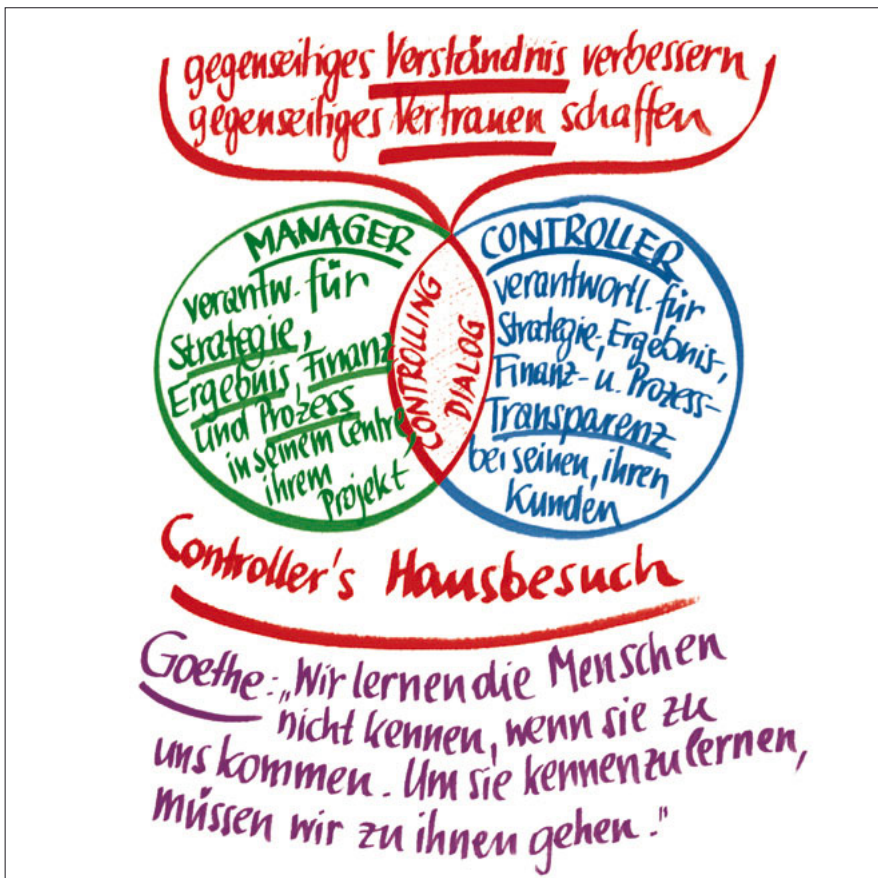 gegenseitiges Verständnis verbessern
gegenseitiges Vertrauen schaffen
MANAGER
verantw. für
Strategie,
Ergebnis, Finanz
und Prozess
in seinem Centre,
ihrem
Projekt
CONTROLLING
DIALOG
CONTROLLER
verantwortl. für
Strategie-, Ergebnis-,
Finanz- u. Prozess-
Transparenz
bei seinen, ihren
Kunden
Controller's Hausbesuch
Goethe: „Wir lernen die Menschen
nicht kennen, wenn sie zu
uns kommen. Um sie kennenzulernen,
müssen wir zu ihnen gehen."